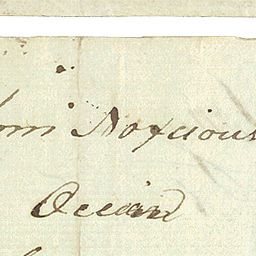 om Noxcious
Ocean